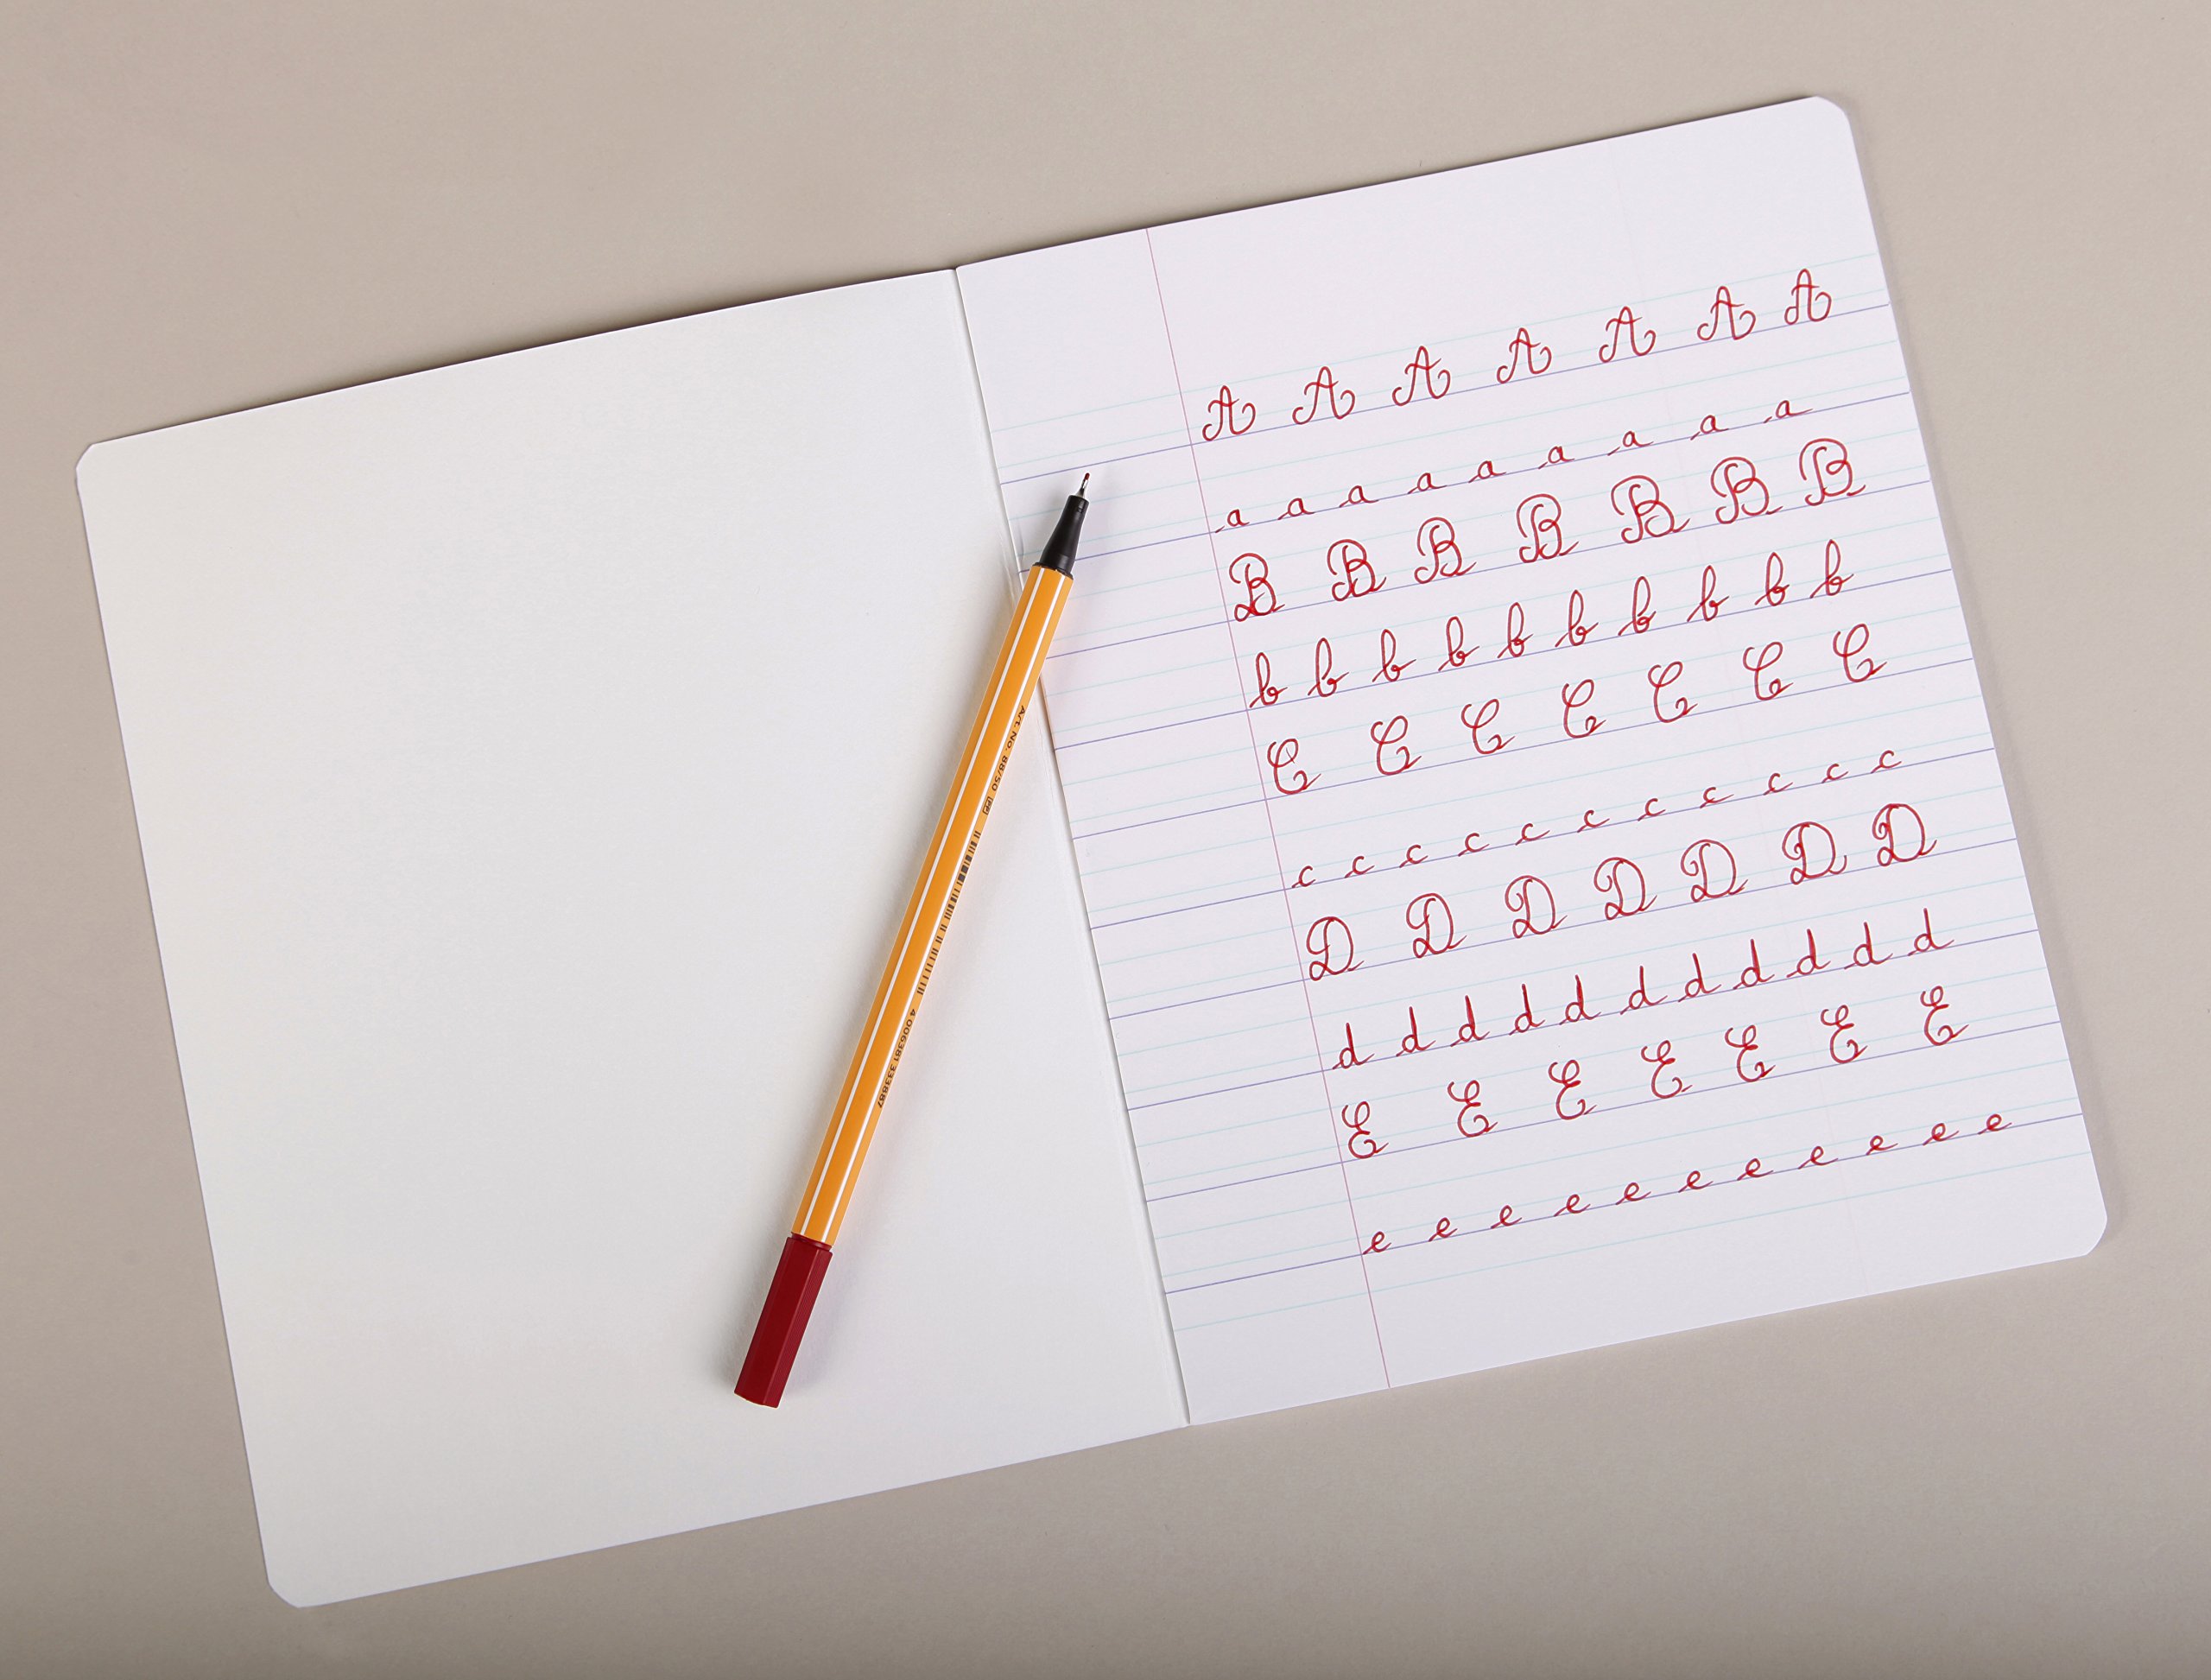 A A A A A A A
a a a a a a a a a
B B B B B B B
b b b b b b b b b b
C C C C C C C
c c c c c c c c c c c
D D D D D D D
d d d d d d d d d d d
E E E E E E E
e e e e e e e e e e e
Art. No. 88/50
4 006381 333887